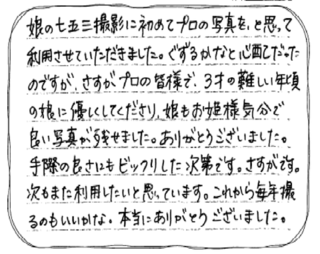 娘の七五三撮影に初めてプロの写真を、と思って
利用させていただきました。ぐずるかなと心配だった
のですが、さすがプロの皆様で、3才の難しい年頃
の娘に優しくしてくださり、娘もお姫様気分で
良い写真が残せました。ありがとうございました。
手際の良さにもビックリした次第です。さすがです。
次もまた利用したいと思っています。これから毎年撮
るのもいいかな。本当にありがとうございました。